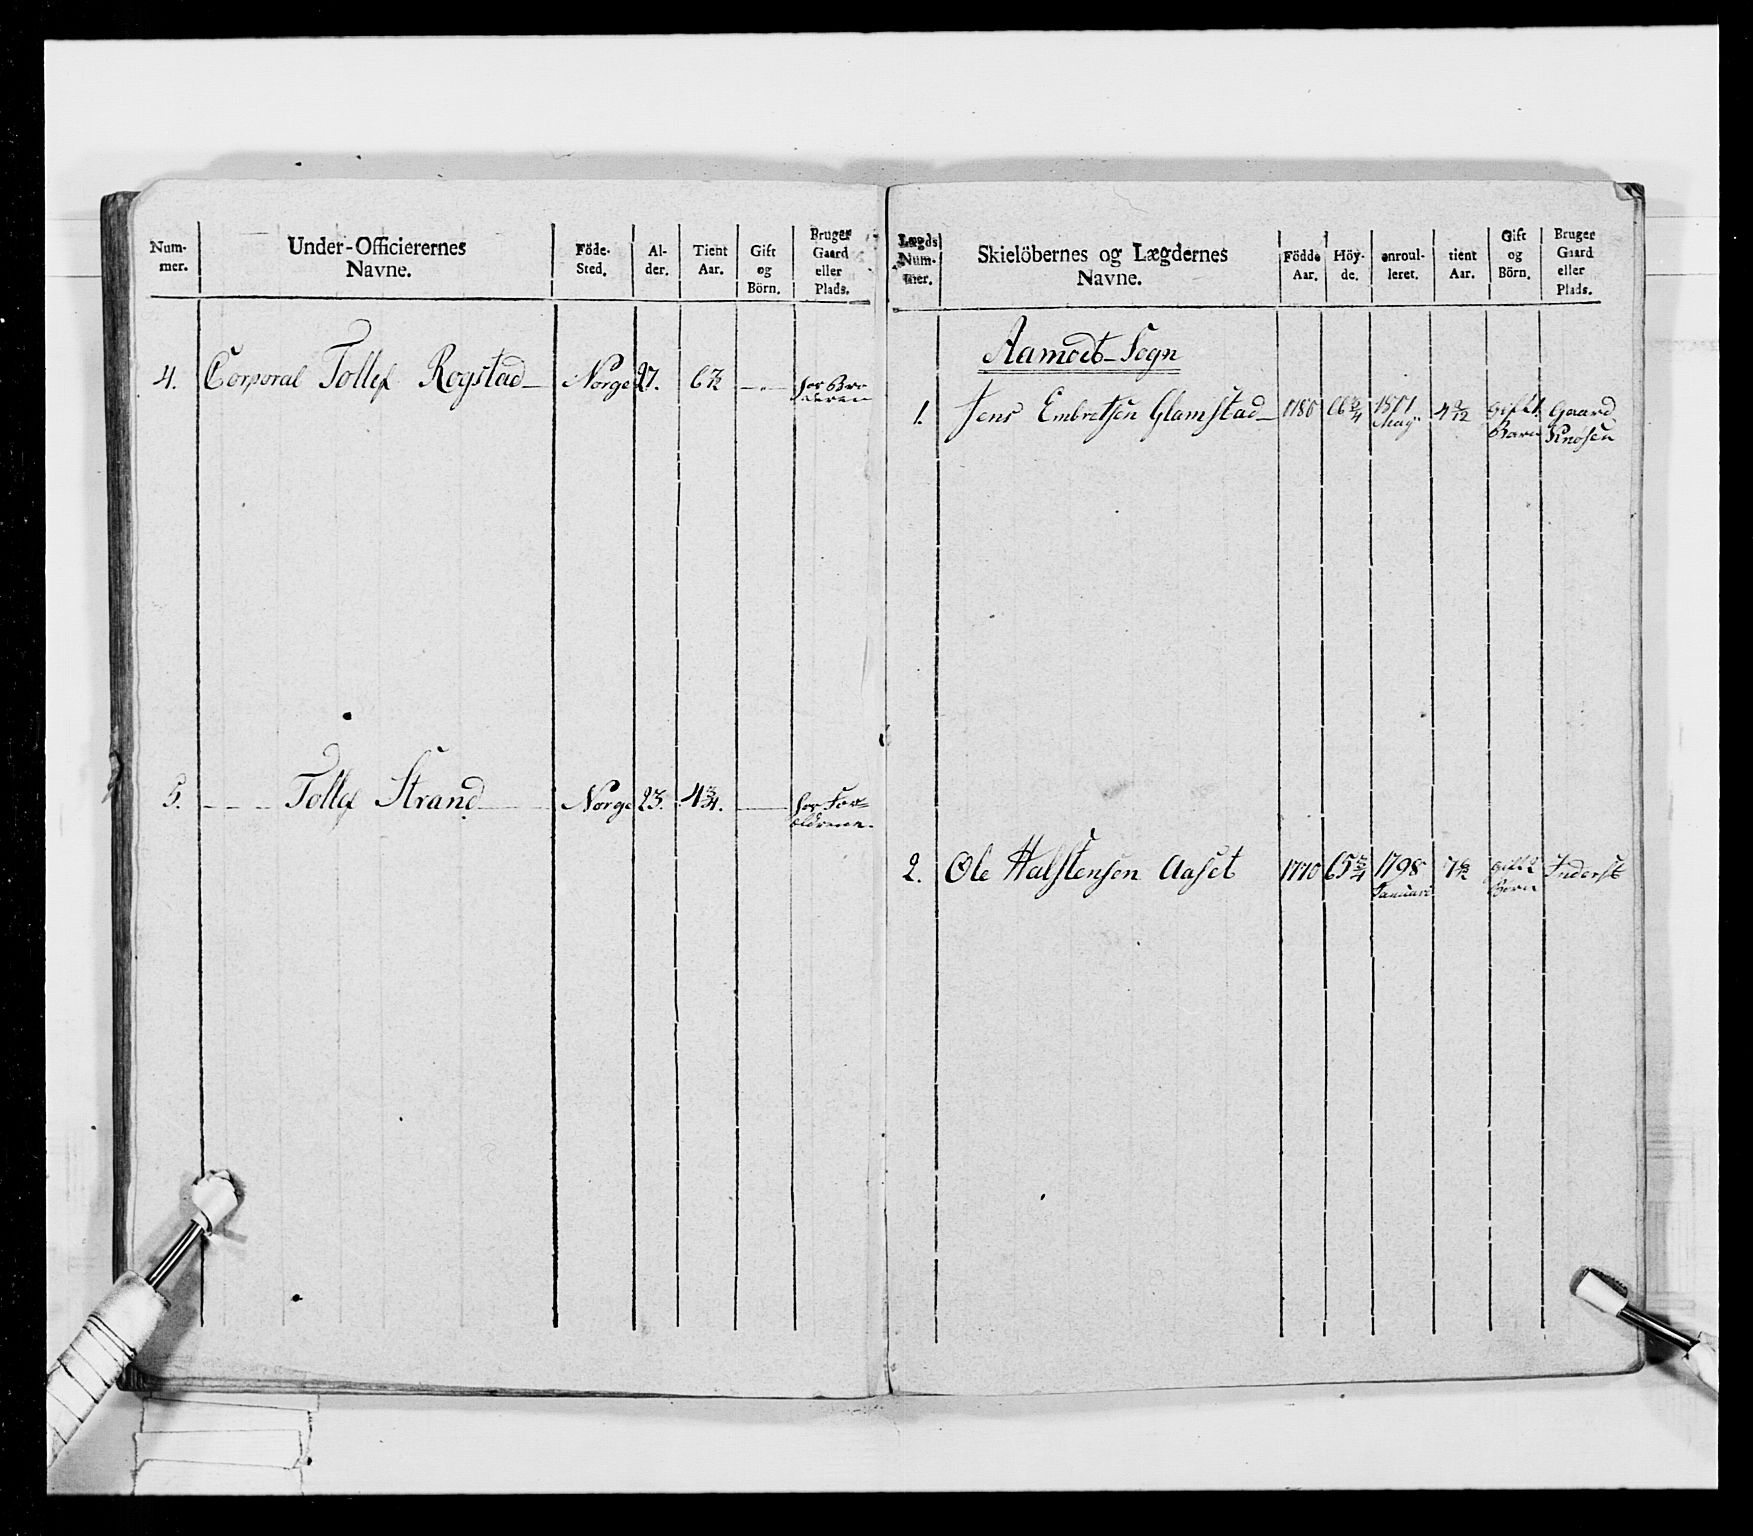 Num-
mer.
Under-Officierernes
Navne.
Föde-
Sted.
Al-
der.
Tient
Aar.
Gift
og
Börn.
Bruger
Gaard
eller
Plads.
4. Corporal Tollef Rogstad Norge 27. 6½ for Bro
deren
5. Tollef Strand Norge 23. 4¾. for For=
ældrene.
Lægds
Num-
mer.
Skielöbernes og Lægdernes
Navne.
Födde
Aar.
Höy-
de.
enroul-
leret.
tient
Aar.
Gift
og
Börn.
Bruger
Gaard
eller
Plads.
Aamodt-Sogn
1. Jens Embretsen Glamstad 1780 Gift 1. Gaard
Barn
2. Ole Halstensen Aaset 1770 65¾ 1798 Gift 2 Inderst
Januari Børn